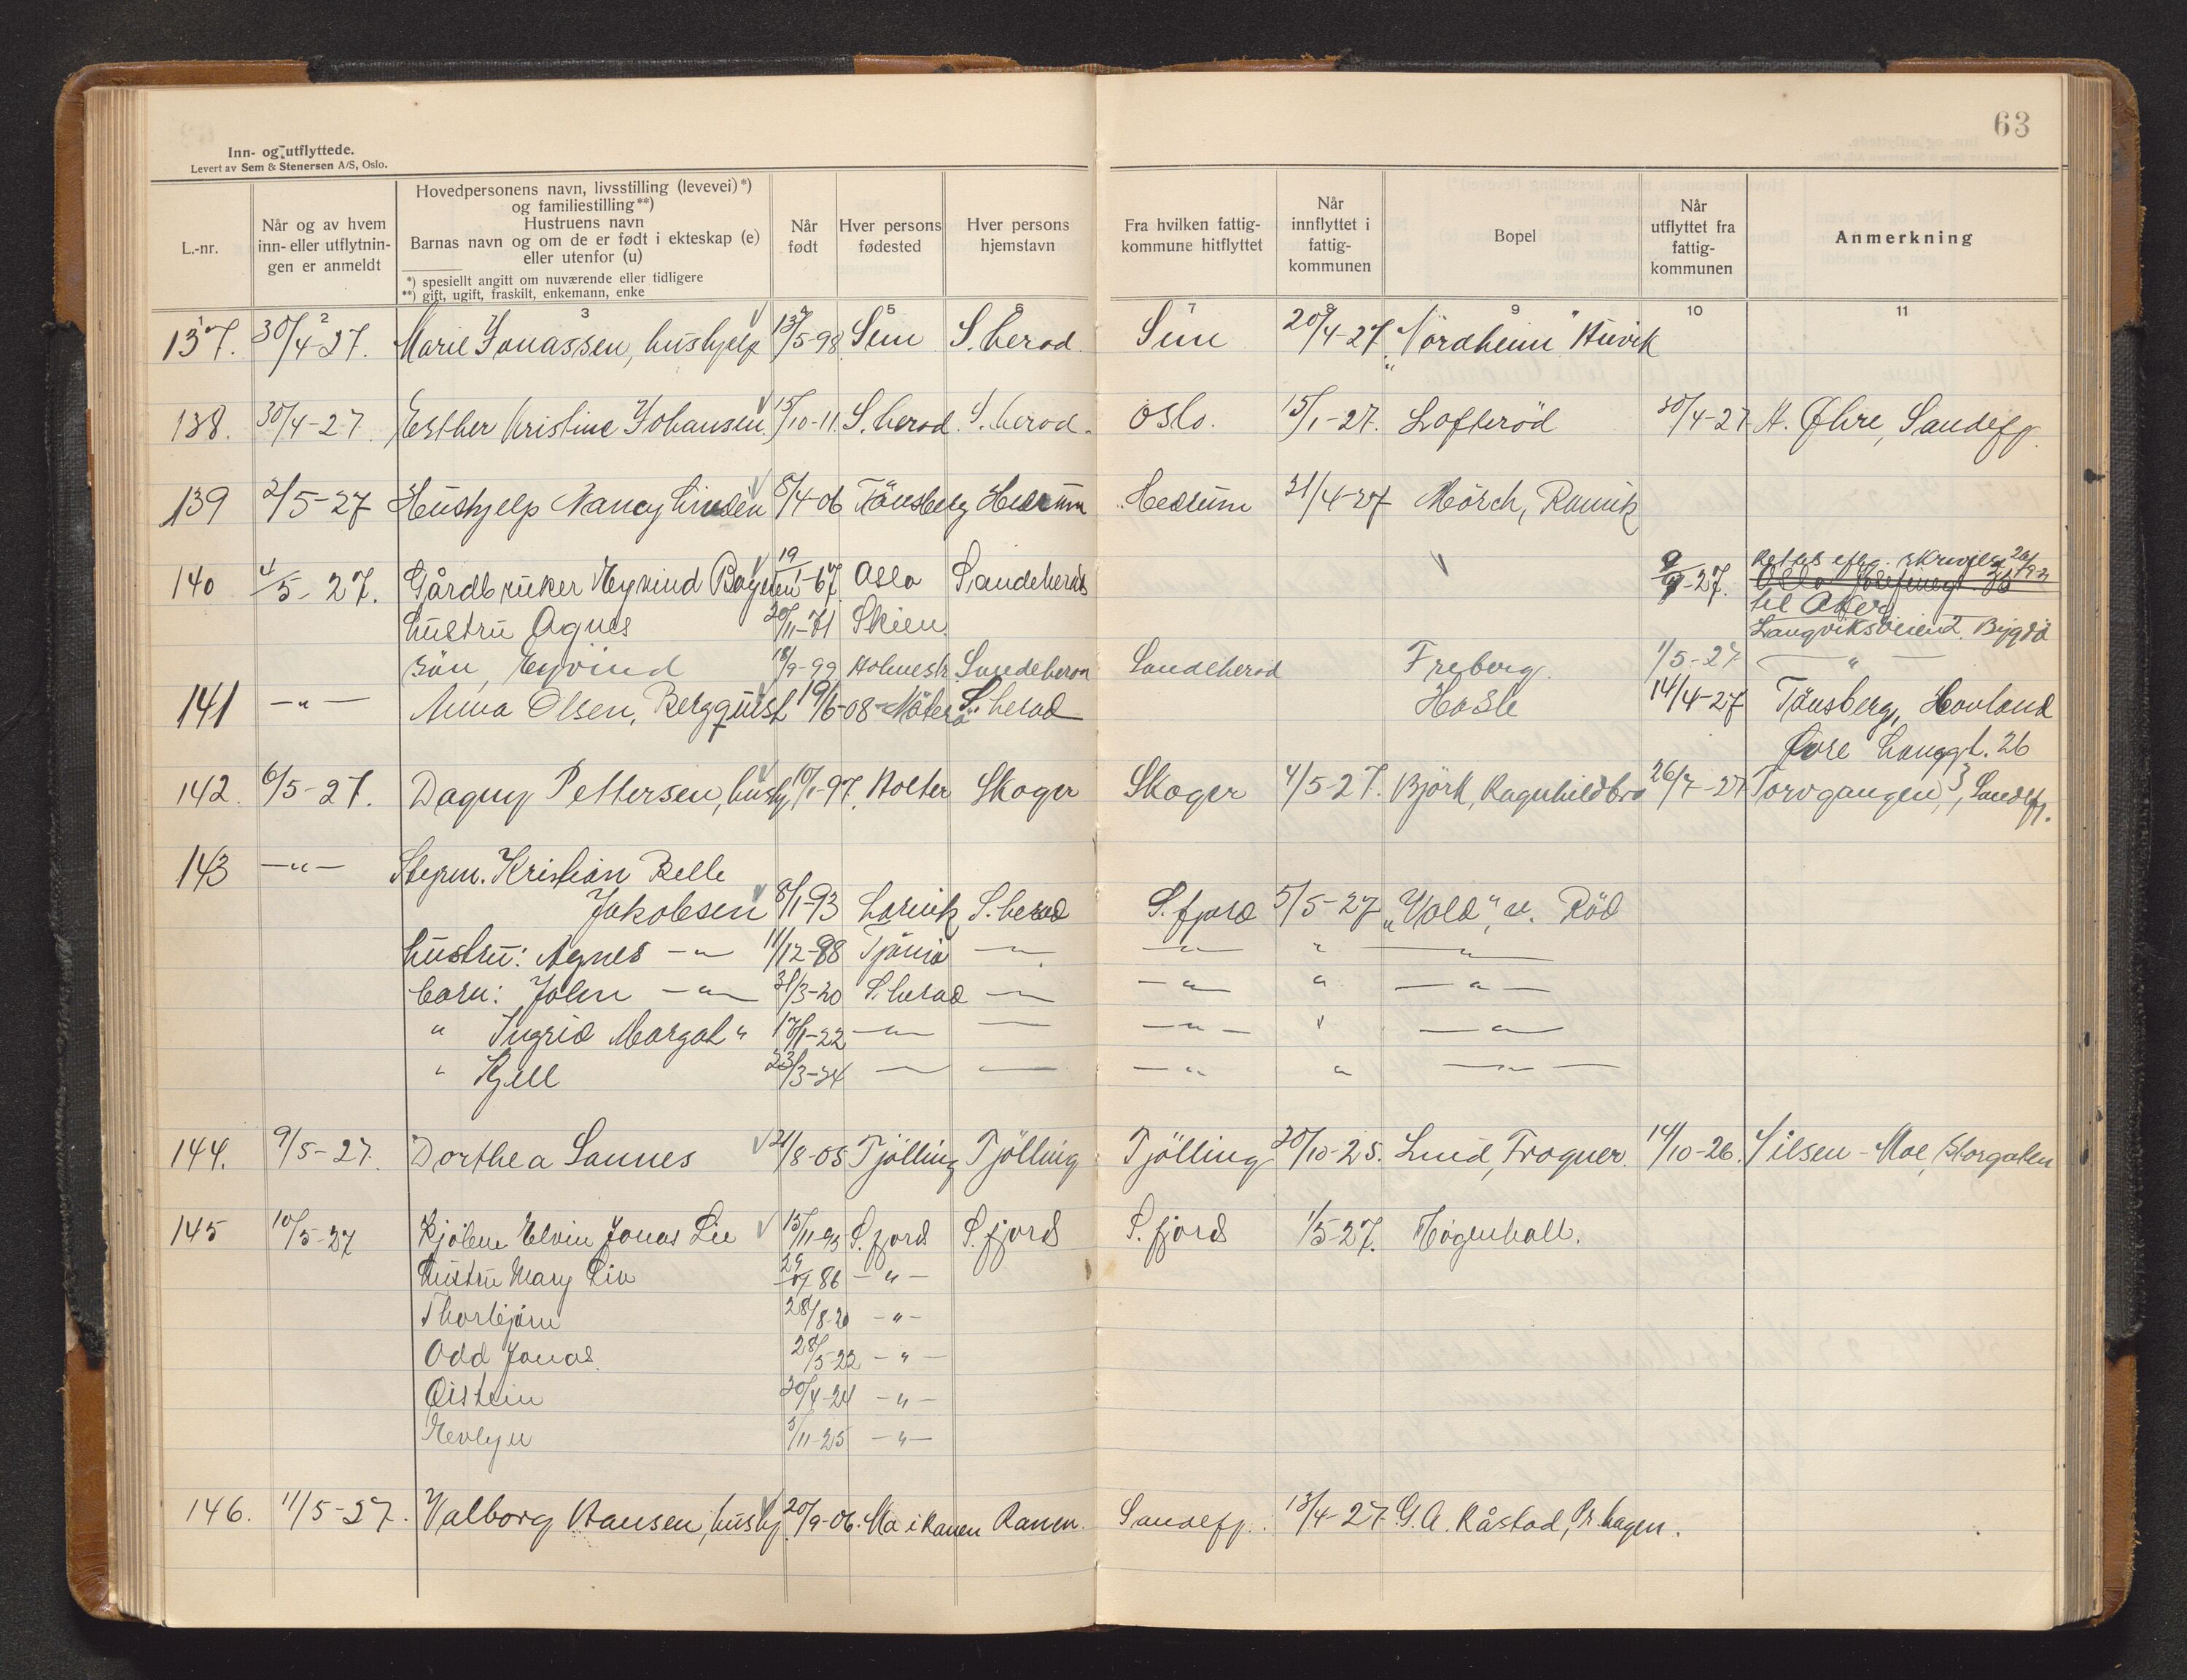 63
Inn- og utflyttede.
Levert av Sem & Stenersen A/S, Oslo.
L.-nr.
Når og av hvem inn- eller utflytnin-gen er anmeldt
Hovedpersonens navn, livsstilling (levevei) *)
og familiestilling **)
Hustruens navn
Barnas navn og om de er født i ekteskap (e)
eller utenfor (u)
*) spesielt angitt om nuværende eller tidligere
**) gift, ugift, fraskilt, enkemann, enke
Når født
Hver persons fødested
Hver persons hjemstavn
Fra hvilken fattig-kommune hitflyttet
Når innflyttet i fattig-kommunen
Bopel
Når utflyttet fra fattig-kommunen
Anmerkning
2 3 5 6 7 9 10 11
137. 30/4-27. Marie Jonassen, hushjelp /5-98 Sem S. herad. Sem 20/4-27 "Nordheim" Huvik
138. 30/4-27. Esther Kristine Johansen 15/10-11 S. herad. S. herad. Oslo. 15/1-27. Lofterød 30/4-27 H. Øhre, Sandefj.
139 2/5-27 Hushjelp Nancy Lindén 8/4-06 Tönsberg Hedrum Hedrum 21/4-27 Mörch, Ranvik
140 4/5-27. Gårdbruker Eyvind 19/1-67. Oslo Sandeherad 9/9-27. Oslo
til Aker
hustru Agnes 20/11-71 Skien. Langviksveien 2. Bygdö
sön, Eyvind 18/9-99 Holmestr. Sandeherad Sandeherad Freberg. 1/5-27 — " —
141 — " — Anna Olsen, Bergquist 19/6-08 Nøterø S. herad Hasle 14/4-27 Tönsberg, Hovland
Øvre Langgt. 26
142. 6/5-27. Dagny Pettersen, hushj. 10/1-97. Holter Skoger Skoger 4/5-27. Björk, Ragnhildbro 26/7-27 Torvgangen 3, Sandefj.
143 — " — Styrm. Kristian Pelle
Jakobsen 8/1-93 Larvik S. herad S. fjord 5/5-27 "Vold", v. Röd
hustru: Agnes — " 11/12-98 Tjömö — " — " — " — " —
barn: John — " — 21/3-20 S. herad — " — — " — " — " —
" Ingrid Margot " 17/1-22 — " — — — " — " — " —
" Kjell 23/3-24 — — — " — " — " —
144. 9/5-27. Dorthea Sannes 21/8-05 Tjölling Tjölling Tjölling 20/10-25. Lund, Frogner. 14/10-26. Nilsen - Moe, Storgaten
145 10/5-27 Elvin Jonas Lie 15/11-93 S. fjord S. fjord S. fjord 1/5-27. Högenhall.
hustru Mary Lie 29/ 86 — " —
Thorbjörn 28/8-20 — " —
Odd Jonas. 28/5-22 — " —
Øistein 20/4-24 — " —
Evelyn 3/11-25 — " —
146. 11/5-27. Valborg Hansen, hushj. 20/9-06. Mo i Ranen Ranen. Sandefj. 13/4-27 G. A. Råstad, Pr. hagen.